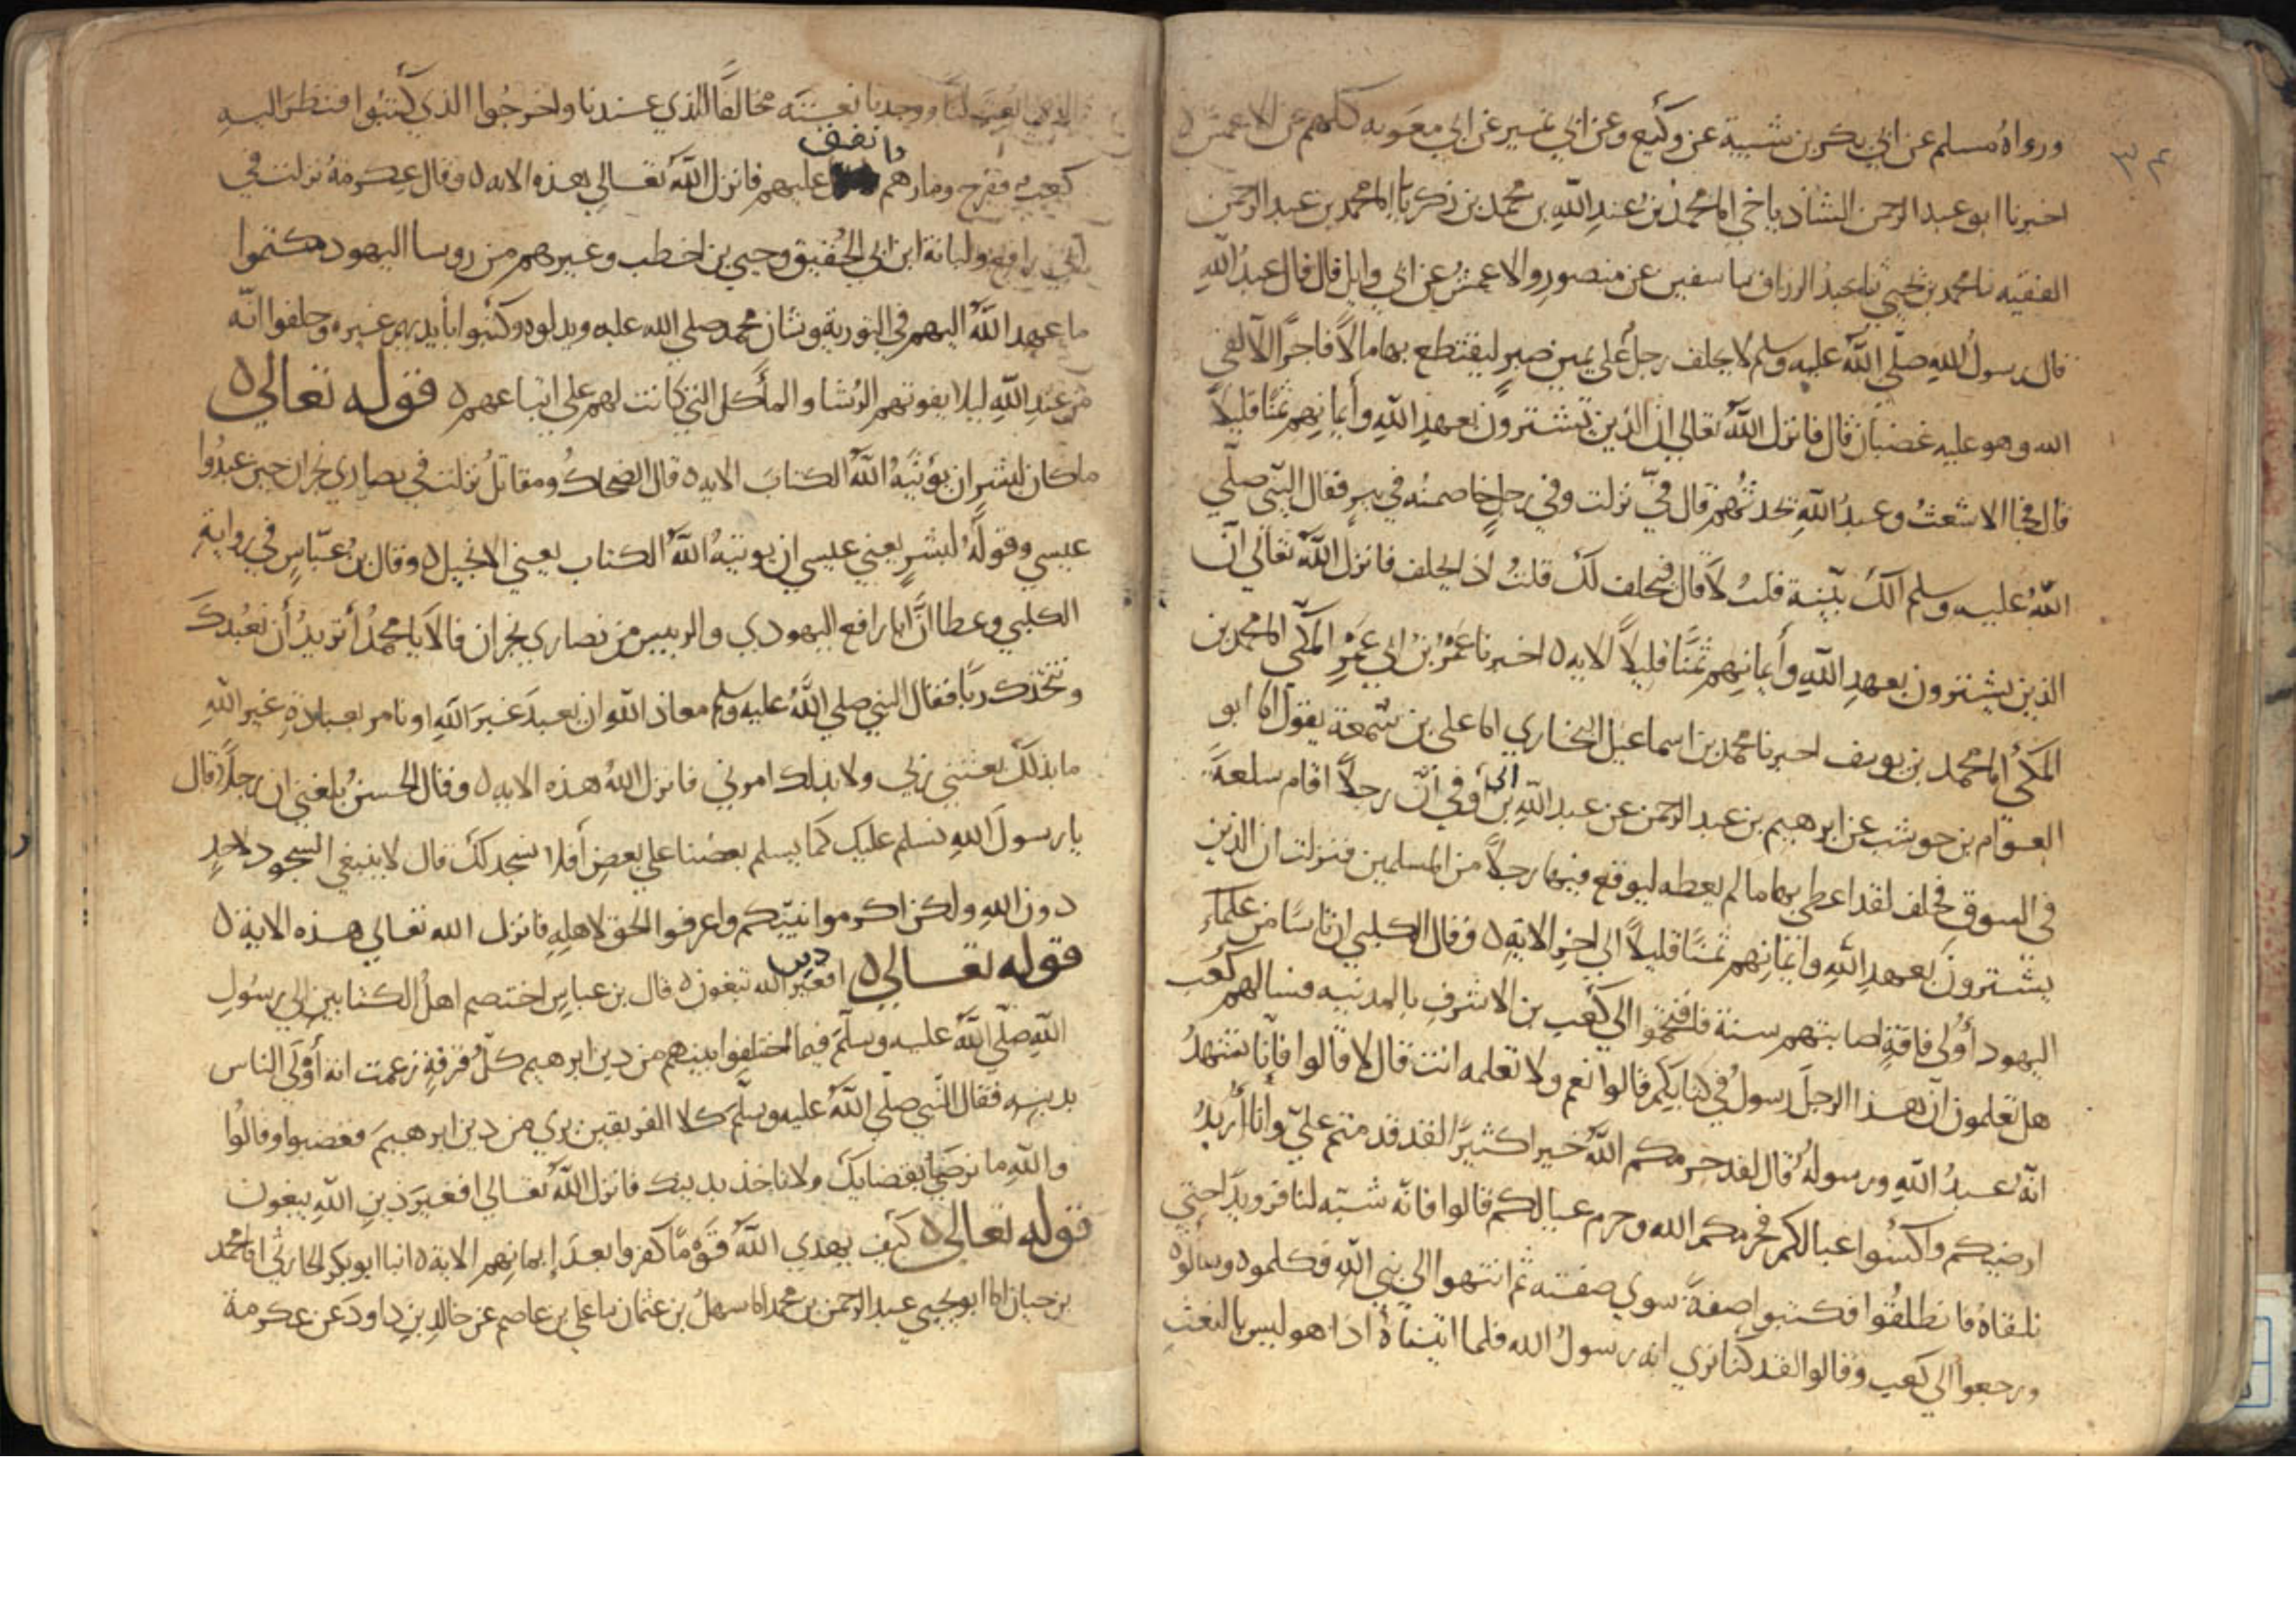 ٣٤
ورواه مسلم عن ابي بكر بن شيبة عن وكيع وعن ابي نمير عن ابي معوية كلهم عن الاعمش ٥
اخبرنا ابو عبد الرحمن الشاذياخي انا محمد بن عبد الله بن محمد بن زكريا انا محمد بن عبد الرحمن
الفقيه نا محمد بن يحيي نا عبد الرزاق نا سفين عن منصور والاعمش عن ابي وايل قال قال عبد الله
قال رسول الله صلي الله عليه وسلم لا يحلف رجل علي يمين صبر ليقتطع بها مالا فاجرا الا لقي
الله وهو عليه غضبان قال فانزل الله تعالي ان الذين يشترون بعهد الله وأيمانهم ثمنا قليلا
قال فجا الاشعث وعبد الله يحدثهم قال فيّ نزلت وفي رجل خاصمته في بير فقال النبي صلي
الله عليه وسلم ألك بينة قلت لا قال فيحلف لك قلت اذ يحلف فانزل الله تعالي ان
الذين يشترون بعهد الله وأيمانهم ثمنا قليلا الايه ٥ اخبرنا عمر بن ابي عمر المكي انا محمد بن
المكي انا محمد بن يوسف اخبرنا محمد بن اسماعيل البخاري انا علي بن سمعة يقول انا ابو
العوام بن حوشب عن ابرهيم بن عبد الرحمن عن عبد الله بن ابي أوفي أن رجلا اقام سلعة
في السوق فحلف لقد اعطي بها ما لم يعطه ليوقع فيها رجلا من المسلمين فنزلت ان الذين
يشترون بعهد الله وايمانهم ثمنا قليلا الي اخر الاية ٥ وقال الكلبي ان ناسا من علماء
اليهود أولي فاقة اصابتهم سنة فاقتحموا الي كعب بن الاشرف بالمدينه فسالهم كعب
هل تعلمون ان هذا الرجل رسول في كتابكم قالوا نعم ولا تعلمه انت قال لا قالوا فإنا نشهد
انه عبد الله ورسوله قال لقد حرمكم الله خيرا كثيرا لقد قدمتم علي وانا أريد
ارضيكم واكسوا عيالكم فحرمكم الله وحرم عيالكم قالوا فانه شبه لنا فرويد حتي
نلقاه فانطلقوا فكتبوا صفة سوي صفته ثم انتهوا الي نبي الله فكلموه وسالوه
ورجعوا الي كعب وقالوا لقد كنا نري انه رسول الله فلما اتيناه اذا هو ليس بالنعت
الذي نعت لنا ووجدنا نعته مخالفا الذي عندنا واخرجوا الذي كتبوا فنظر اليه
كعب ففرح ومارهم وانفق عليهم فانزل الله تعالي هذه الايه ٥ وقال عكرمة نزلت في
ابي رافع ولبابة ابن ابي الحقيق وحيي بن اخطب وغيرهم من روسا اليهود كتموا
ما عهد الله اليهم في التورية وشان محمد صلي الله عليه وبدلوه وكتبوا بأيديهم غيره وحلفوا انه
من عند الله ليلا يفوتهم الرشا والمأكل التي كانت لهم علي اتباعهم ٥ قوله تعالي ٥
ما كان لبشر ان يؤتيه الله الكتاب الايه ٥ قال الضحاك ومقاتل نزلت في نصاري نجران حين عبدوا
عيسي وقوله لبشر يعني عيسي ان يوتيه الله الكتاب يعني الانجيل ٥ وقال بن عباس في رواية
الكلبي وعطا ان ابا رافع اليهودي والربيس من نصاري نجران قالا يا محمد أتريد أن نعبدك
ونتخذك ربا فقال النبي صلي الله عليه وسلم معاذ الله ان نعبد غير الله او نامر بعبادة غير الله
ما بذلك بعثني ربي ولا بذلك امرني فانزل الله هذه الايه ٥ وقال الحسن بلغني ان رجلا قال
يا رسول الله نسلم عليك كما يسلم بعضنا علي بعض أفلا نسجد لك قال لا ينبغي السجود لاحد
دون الله ولكن اكرموا نبيكم واعرفوا الحق لاهله فانزل الله تعالي هذه الاية ٥
قوله تعالي ٥ افغير دين الله تبغون ٥ قال بن عباس اختصم اهل الكتابين الي رسول
الله صلي الله عليه وسلم فيما اختلفوا بينهم من دين ابرهيم كل فرقة زعمت انه أولي الناس
بدينه فقال النبي صلي الله عليه وسلم كلا الفريقين بري من دين ابرهيم فغضبوا وقالوا
والله ما نرضي بقضايك ولا ناخذ بدينك فانزل الله تعالي افغير دين الله يبغون
قوله تعالي ٥ كيف يهدي الله قوما كفروا بعد إيمانهم الاية ٥ انبا ابو بكر الحارثي انا محمد
بن حبان انا ابو يحيي عبد الرحمن بن محمد انا سهل بن عثمان نا علي بن عاصم عن خالد بن داود عن عكرمة